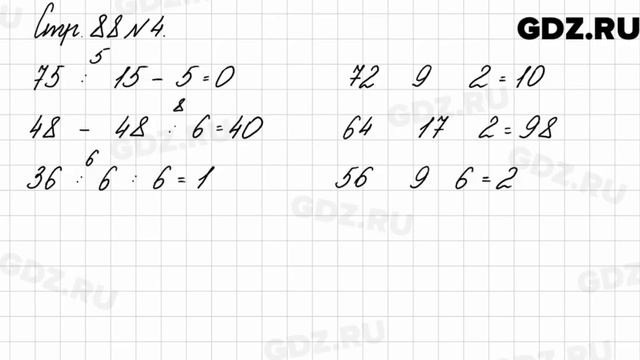 Стр. 88 № 4.
GDZ.RU
5
75 : 15 - 5 = 0
72 9 2 = 10
8
48 - 48 : 6 = 40
64 17 2 = 98
6
36 : 6 : 6 = 1
56 9 6 = 2
GDZ.RU
GDZ.RU
GDZ.RU
GDZ.RU
GDZ.RU
GDZ.RU
GDZ.RU